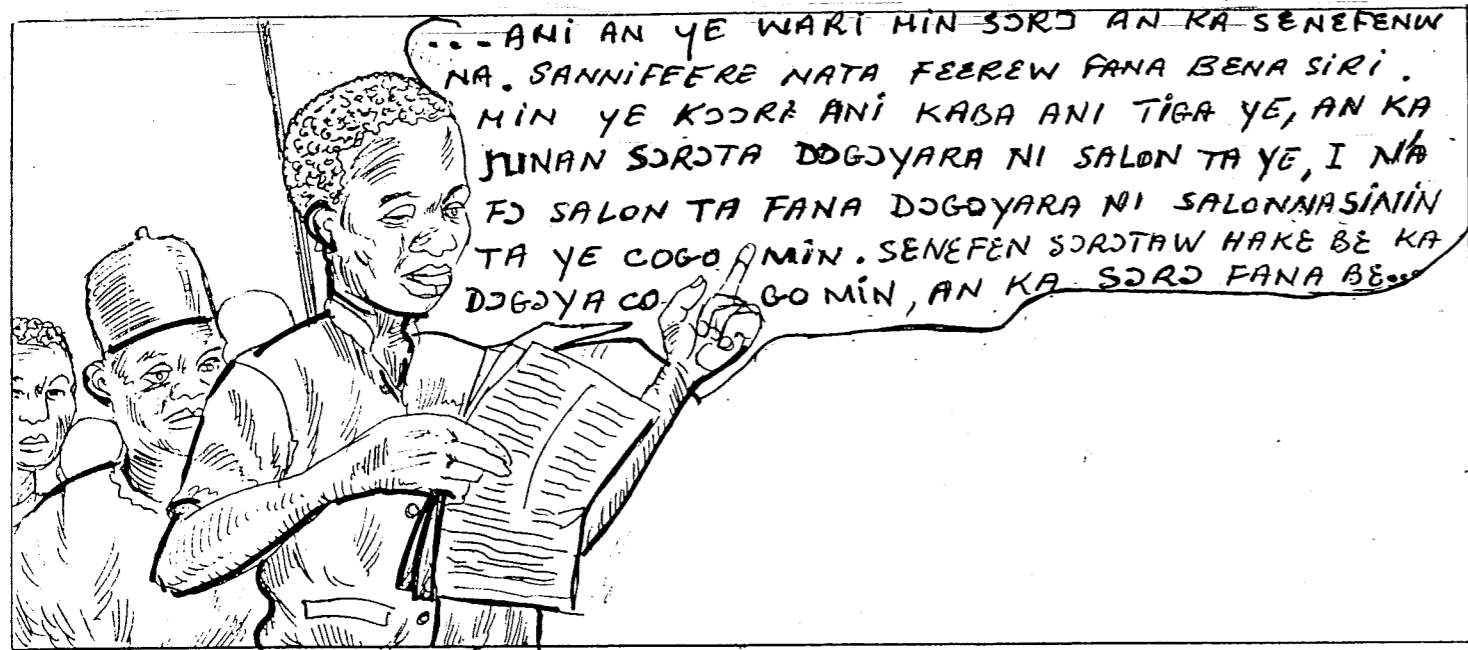 ...ANI AN YE WARI MIN SƆRƆ AN KA SENEFENW
NA. SANNIFEERE NATA FEEREW FANA BENA SIRI.
MIN YE KƆƆRI ANI KABA ANI TIGA YE, AN KA
ɲINAN SƆRƆTA DƆGƆYARA NI SALON TA YE, I N'A
FƆ SALON TA FANA DƆGƆYARA NI SALONNASININ
TA YE COGO MIN. SENEFEN SƆRƆTAW HAKE BE KA
DƆGƆYA COGO MIN, AN KA SƆRƆ FANA BE...